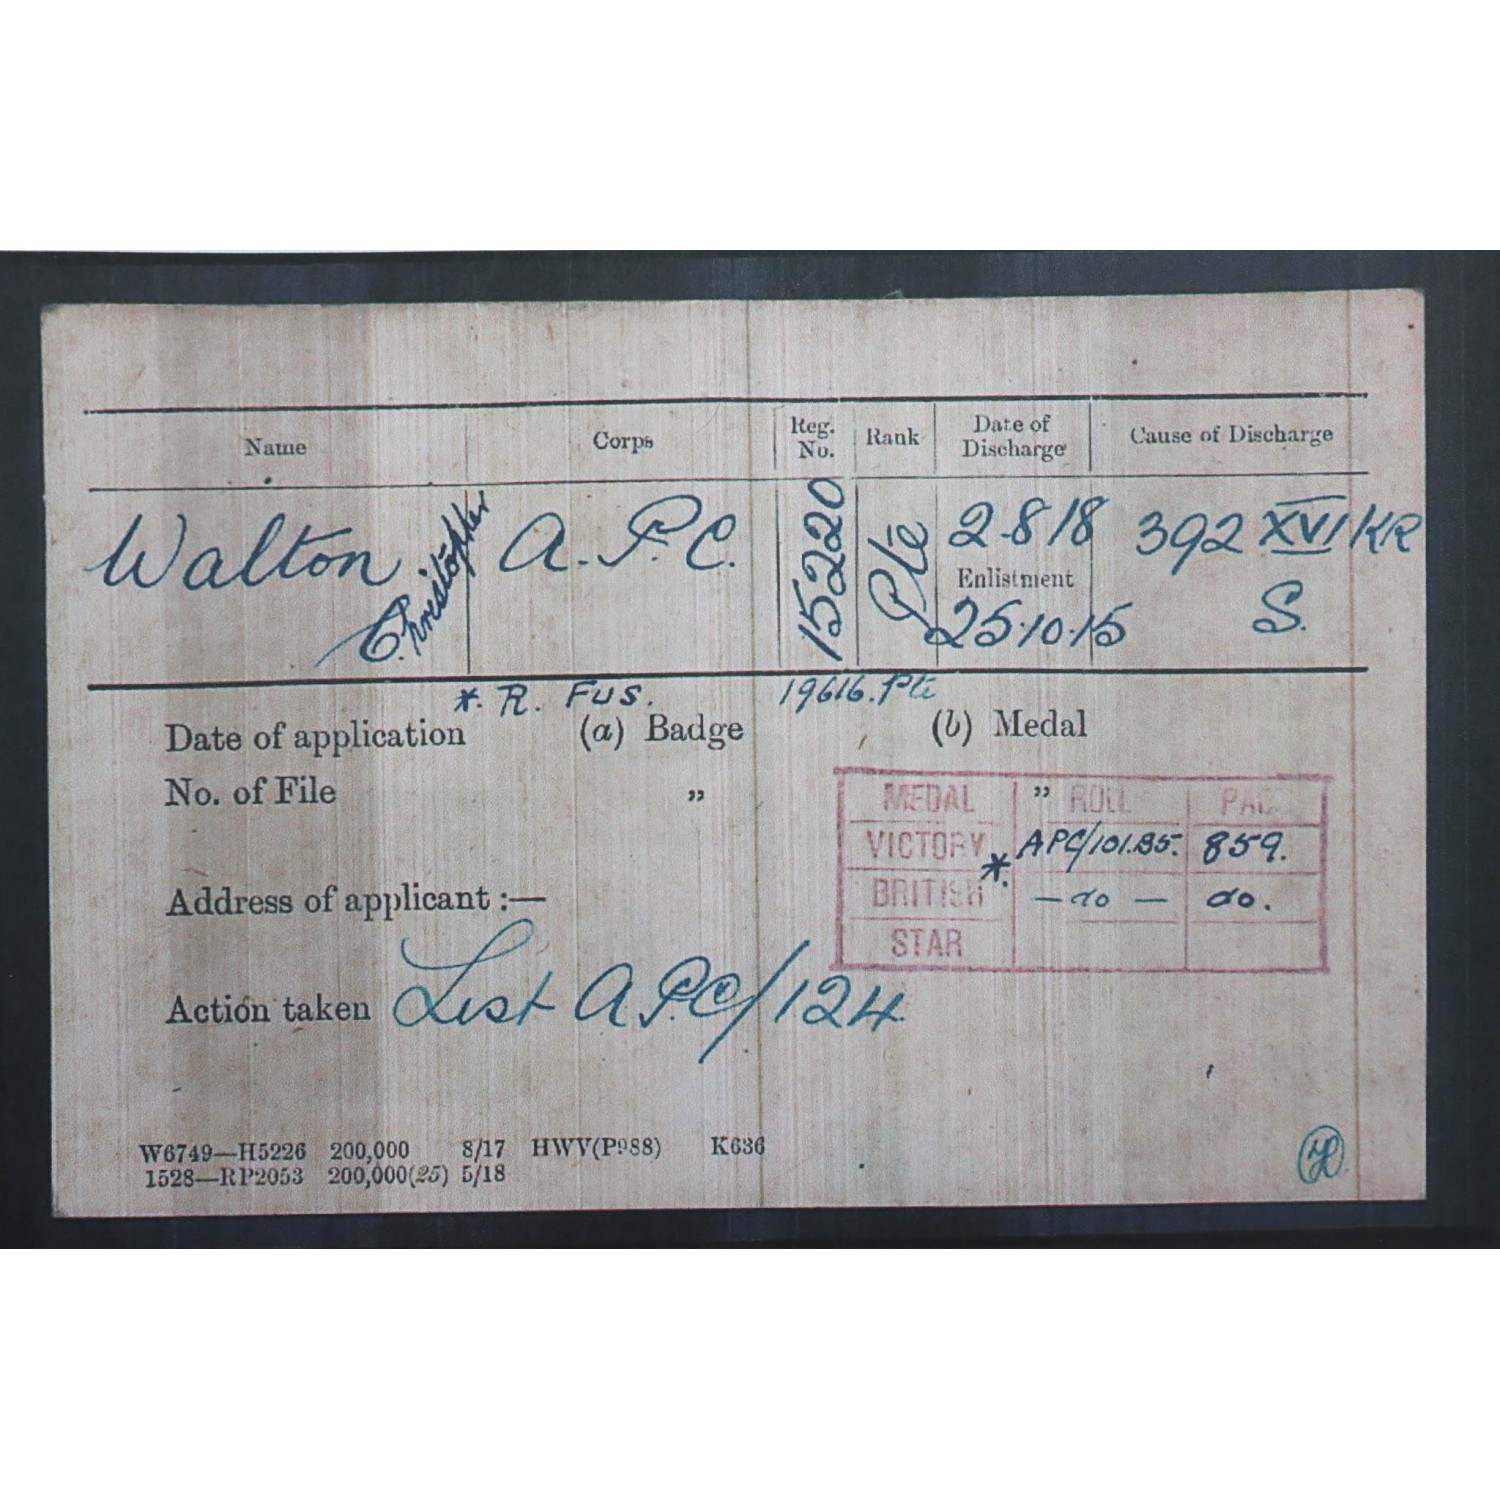 Name Corps Reg. No. Rank Date of Discharge Cause of Discharge
Walton Christopher A.P.C. 15220 Pte 2.8.18 392 XVI KR
Enlistment
25.10.15 S.
*. R. Fus. 19616. Pte
Date of application (a) Badge (b) Medal
No. of File " "
MEDAL ROLL
VICTORY *. APC/101.B5. 859.
BRITISH — do — do.
STAR
Address of applicant :—
Action taken List A.P.C/124.
W6749—H5226 200,000 8/17 HWV(P988) K636
1528—RP2053 200,000(25) 5/18